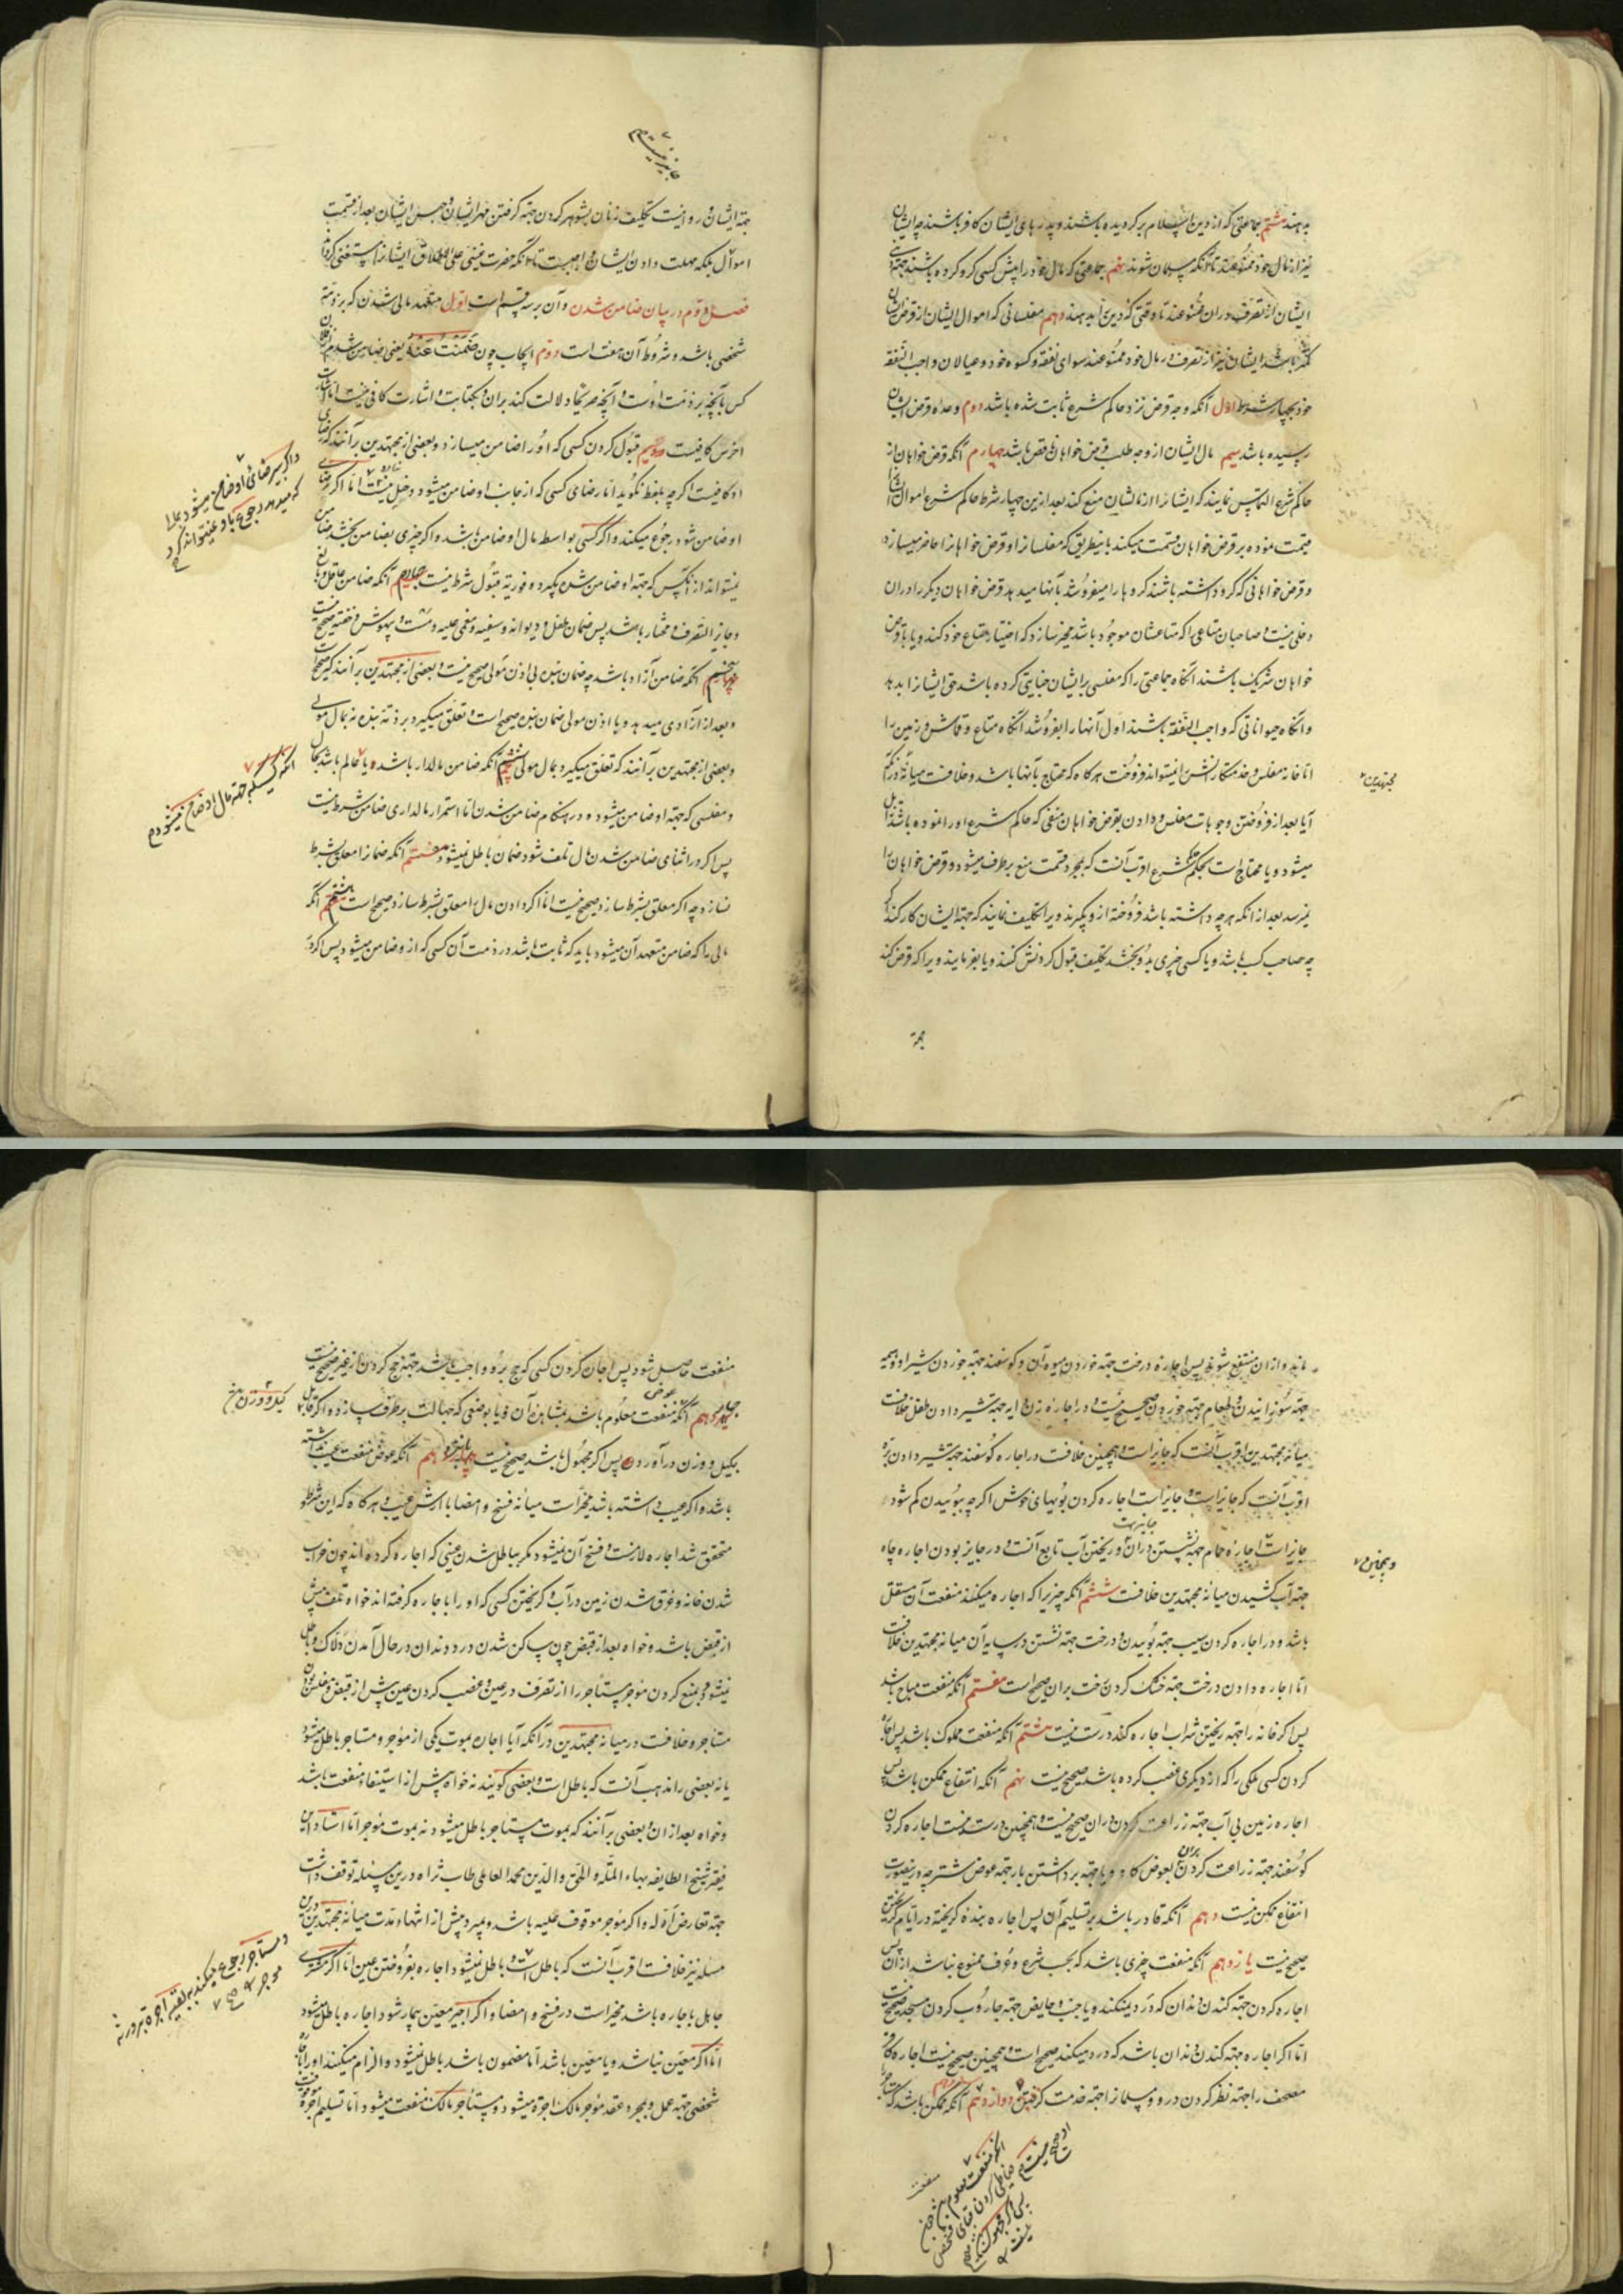 بدهند هشتم جماعتی که از دین اسلام برگردیده باشند و پدرهای ایشان کافر باشند چه ایشان
نیز از مال خود ممنوعند تا آنکه مسلمان شوند نهم جماعتی که مال خود را پیش کسی گرو کرده باشند چه
ایشان از تصرف در ان ممنوعند تا وقتی که دین ابدهند دهم مفلسانی که اموال ایشان از قرض ایشان
کمتر باشد ایشان نیز از تصرف در مال خود ممنوعند سوای نفقه و کسوه خود و عیالان واجب النفقه
خود بچهار شرط اول آنکه وجه قرض نزد حاکم شرع ثابت شده باشد دوم وعده قرض ایشان
رسیده باشد سیم مال ایشان از وجه طلب قرض خواهان ناقص باشد چهارم آنکه قرض خواهان از
حاکم شرع التماس نمایند که ایشانرا از مالشان منع کند بعد ازین چهار شرط حاکم شرع اموال ایشانرا
قیمت نموده بر قرض خواهان قسمت میکند باینطریق که مفلسانرا و قرض خواهانرا حاضر میسازد
و قرض خواهانی که گرو داشته باشند گروها را میفروشد بآنها میدهد قرض خواهان دیگر را در ان
دخلی نیست و صاحبان متاعی را که متاعشان موجود باشد مخیر سازد که اختیار متاع خود کنند و یا با قرض
خواهان شریک باشند انگاه جماعتی را که مفلسی بر ایشان جنایتی کرده باشد حق ایشانرا بدهد
و انگاه حیواناتی که واجب النفقه باشند اول آنها را بفروشد آنگاه متاع و قماش و زمین را
اما خانه مفلس و خدمتکارانش را نمیتواند فروخت هرگاه که محتاج بآنها باشد و خلافست میانه در آنکه
مجتهدین
آیا بعد از فروختن وجوهات مفلس و دادن بقرض خواهان منعی که حاکم شرع او را نموده باشد زایل
میشود و یا محتاج است بحکم حاکم شرع اقرب آنست که بمجرد قسمت منع برطرف میشود و قرض خواهان را
نمیرسد بعد از انکه هر چه داشته باشد فروخته ازو بگیرند ویرا تکلیف نمایند که جهة ایشان کار کند
چه صاحب کسب باشد و یا کسی چیزی بدو بخشد تکلیف قبول کردنش کنند و یا بفرمایند ویرا که قرض کند
جهة
جهة ایشان و روا نیست تکلیف زنان بشوهر کردن جهة گرفتن مهر ایشان و حبس ایشان بعد از قسمت
اموال بلکه مهلت دادن ایشان واجبست تا آنکه حضرت غنی علی الاطلاق ایشانرا مستغنی گرداند
فصل دوم در بیان ضامن شدن و آن بر سه قسم است اول متعهد مالی شدن که بر ذمه
شخصی باشد و شروط آن هفت است دوم ایجاب چون ضمنت عنه یعنی ضامن شدم فلان
کس بآنچه بر ذمت اوست و آنچه صریحا دلالت کند بران و کتابت و اشارت کافی نیست اما اشارت
اخرس کافیست سیم قبول کردن کسی که او را ضامن میسازد و بعضی از مجتهدین برآنند که رضای
او کافیست اگرچه بلفظ نگوید اما رضای کسی که از جانب او ضامن میشود دخل نیست اما اگر
او ضامن شود رجوع میکند و اگر کسی بواسطه مال او ضامن باشد و اگر چیزی بضامن بخشد ضامن
نمیتواند از آنکس که جهة او ضامن شده بگیرد و فوریه قبول شرط نیست چهارم آنکه ضامن عاقل و بالغ
و جایز التصرف و مختار باشد پس ضمان طفل و دیوانه و سفیه و مغمی علیه و مست و بیهوش و خفته صحیح نیست
پنجم آنکه ضامن آزاد باشد چه ضمان بنده بی اذن مولی صحیح نیست و بعضی از مجتهدین برآنند که صحیح است
و بعد از آزادی میدهد و با اذن مولی ضمان بنده صحیح است و تعلق میگیرد بر ذمه بنده نه بمال مولی
و بعضی از مجتهدین برآنند که تعلق میگیرد بمال مولی ششم آنکه ضامن مالدار باشد یا عالم باشد بحال
و مفلسی که جهة او ضامن میشود و در هنگام ضامن شدن اما استمرار مالداری ضامن شرط نیست
پس اگر در اثنای ضامن شدن مال تلف شود ضمان باطل نمیشود هفتم آنکه ضمانرا معلق بشرط
نسازد چه اگر معلق بشرط سازد صحیح نیست اما اگر دادن مال را معلق بشرط سازد صحیح است هشتم آنکه
مالی را که ضامن متعهد آن میشود باید که ثابت باشد در ذمت آن کسی که ازو ضامن میشود پس اگر در
ماند و ازان منتفع شوند پس اجاره درخت جهة خوردن میوه آن و گوسفند جهة خوردن شیر او و هیمه
جهة سوزانیدن و طعام جهة خوردن صحیح نیست و در اجاره زن دایه جهة شیر دادن طفل خلافست
میانه مجتهدین اقرب آنست که جایز است و همچنین خلافست در اجاره گوسفند جهة شیر دادن بره
اقرب آنست که جایز است و جایز است اجاره کردن بوبهای خوش اگرچه ببوییدن کم شود
جایز است اجاره حمام جهة شستن دران و ریختن آب تابع آنست و در جایز بودن اجاره چاه
و همچنین
جهة آب کشیدن میانه مجتهدین خلافست ششم آنکه چیزیرا که اجاره میکنند منفعت آن مستقل
باشد و در اجاره کردن سیب جهة بوییدن و درخت جهة نشستن در سایه آن میانه مجتهدین خلافست
اما اجاره دادن درخت جهة خشک کردن رخت بران صحیح است هفتم آنکه منفعت مباح باشد
پس اگر خانه را جهة ریختن شراب اجاره کند درست نیست هشتم آنکه منفعت مملوک باشد پس اجاره
کردن کسی ملکی را که از دیگری غصب کرده باشد صحیح نیست نهم آنکه انتفاع ممکن باشد پس
اجاره زمین بی آب جهة زراعت کردن دران صحیح نیست و همچنین درست نیست اجاره کردن
گوسفند جهة زراعت کردن بران بعوض گاو و یا جهة برداشتن بار جهة عوض شتر چه درینصورت
انتفاع ممکن نیست دهم آنکه قادر باشد بر تسلیم آن پس اجاره بنده گریخته در ایام گریختن
صحیح نیست یازدهم آنکه منفعت چیزی باشد که بحسب شرع و عرف ممنوع نباشد ازان پس
اجاره کردن جهة کندن دندان که درد نمیکند و یا جنب و حایض جهة جاروب کردن مسجد صحیح نیست
اما اگر اجاره جهة کندن دندان باشد که درد میکند صحیح است و همچنین صحیح نیست اجاره کافر
مصحف را جهة نظر کردن درو و مسلمانرا جهة خدمت کردن دوازدهم آنکه ممکن باشد که
منفعت
منفعت حاصل شود پس اجاره کردن کسی که حج برو واجب باشد جهة حج کردن از غیر صحیح نیست
چهاردهم آنکه عوض منفعت معلوم باشد بمشاهده آن و یا بوصفی که جهالت برطرف سازد و اگر قابل
کیل و وزن
بکیل و وزن درآورد پس اگر مجهول باشد صحیح نیست پانزدهم آنکه عوض منفعت عیب نداشته
باشد و اگر عیب داشته باشد مخیر است میانه فسخ و امضا با ارش عیب و هرگاه که این شروط
متحقق شد اجاره لازمست و فسخ آن نمیشود مگر بباطل شدن عینی که اجاره کرده اند چون خراب
شدن خانه و غرق شدن زمین در آب و گریختن کسی که او را باجاره گرفته اند خواه تلف پیش
از قبض باشد و خواه بعد از قبض چون ساکن شدن درد دندان در حال آمدن دلاک و باطل
نمیشود بمنع کردن موجر مستأجر را از تصرف در عین و غصب کردن عین پیش از قبض و مفلس بودن
مستأجر و خلافست در میانه مجتهدین در آنکه آیا اجاره بموت یکی از موجر و مستأجر باطل میشود
یا نه بعضی را مذهب آنست که باطل است و بعضی گویند نه خواه پیش از استیفاء منفعت باشد
و خواه بعد از ان و بعضی برآنند که بموت مستأجر باطل میشود نه بموت موجر اما استاد این
فقیر شیخ الطایفه بهاء الملة و الحق و الدین محمد العاملی طاب ثراه درین مسئله توقف داشت
جهة تعارض ادله و اگر موجر موقوف علیه باشد و بمیرد پیش از انتهاء مدت میانه مجتهدین درین
مسئله نیز خلافست اقرب آنست که باطل است و باطل نمیشود اجاره بفروختن عین اما اگر مشتری
جاهل باجاره باشد مخیر است در فسخ و امضا و اگر اجیر معین بیمار شود اجاره باطل میشود
اما اگر معین نباشد و یا معین باشد اما مضمون باشد باطل نمیشود و الزام میکنند او را باجاره
شخصی جهة عمل و بمجرد عقد موجر مالک اجرة میشود و مستأجر مالک منفعت میشود اما تسلیم اجرة